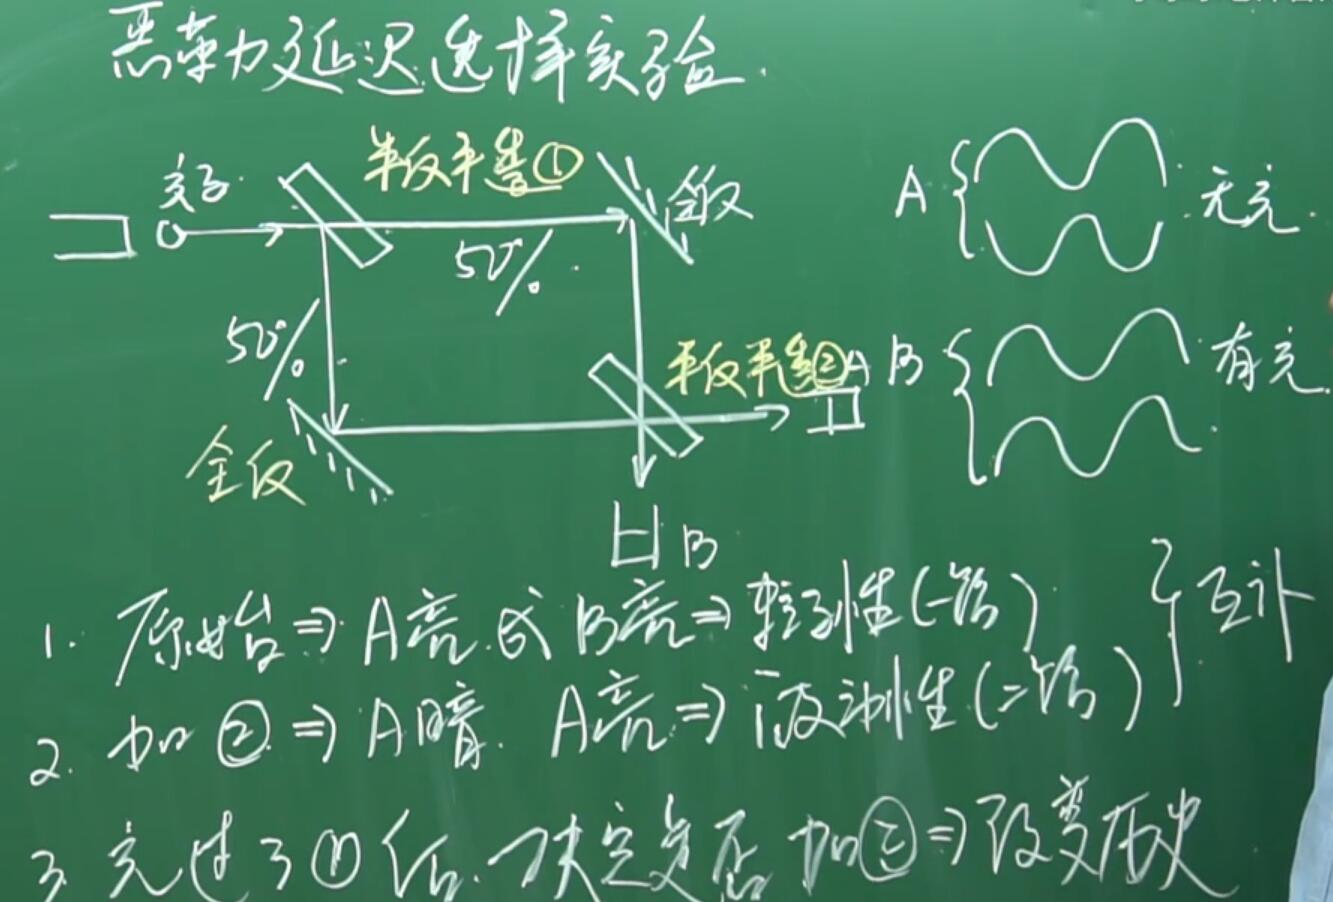 惠勒延迟选择实验.
光子.
半反半透①
全反
50%
50%.
半反半透②A
全反
B
A
无光.
B
有光.
1. 原始⇒A亮或B亮⇒粒子性(一路)
2. 加②⇒A暗. A亮⇒波动性(二路)
互补
3. 光过了①后.决定是否加②⇒改变历史